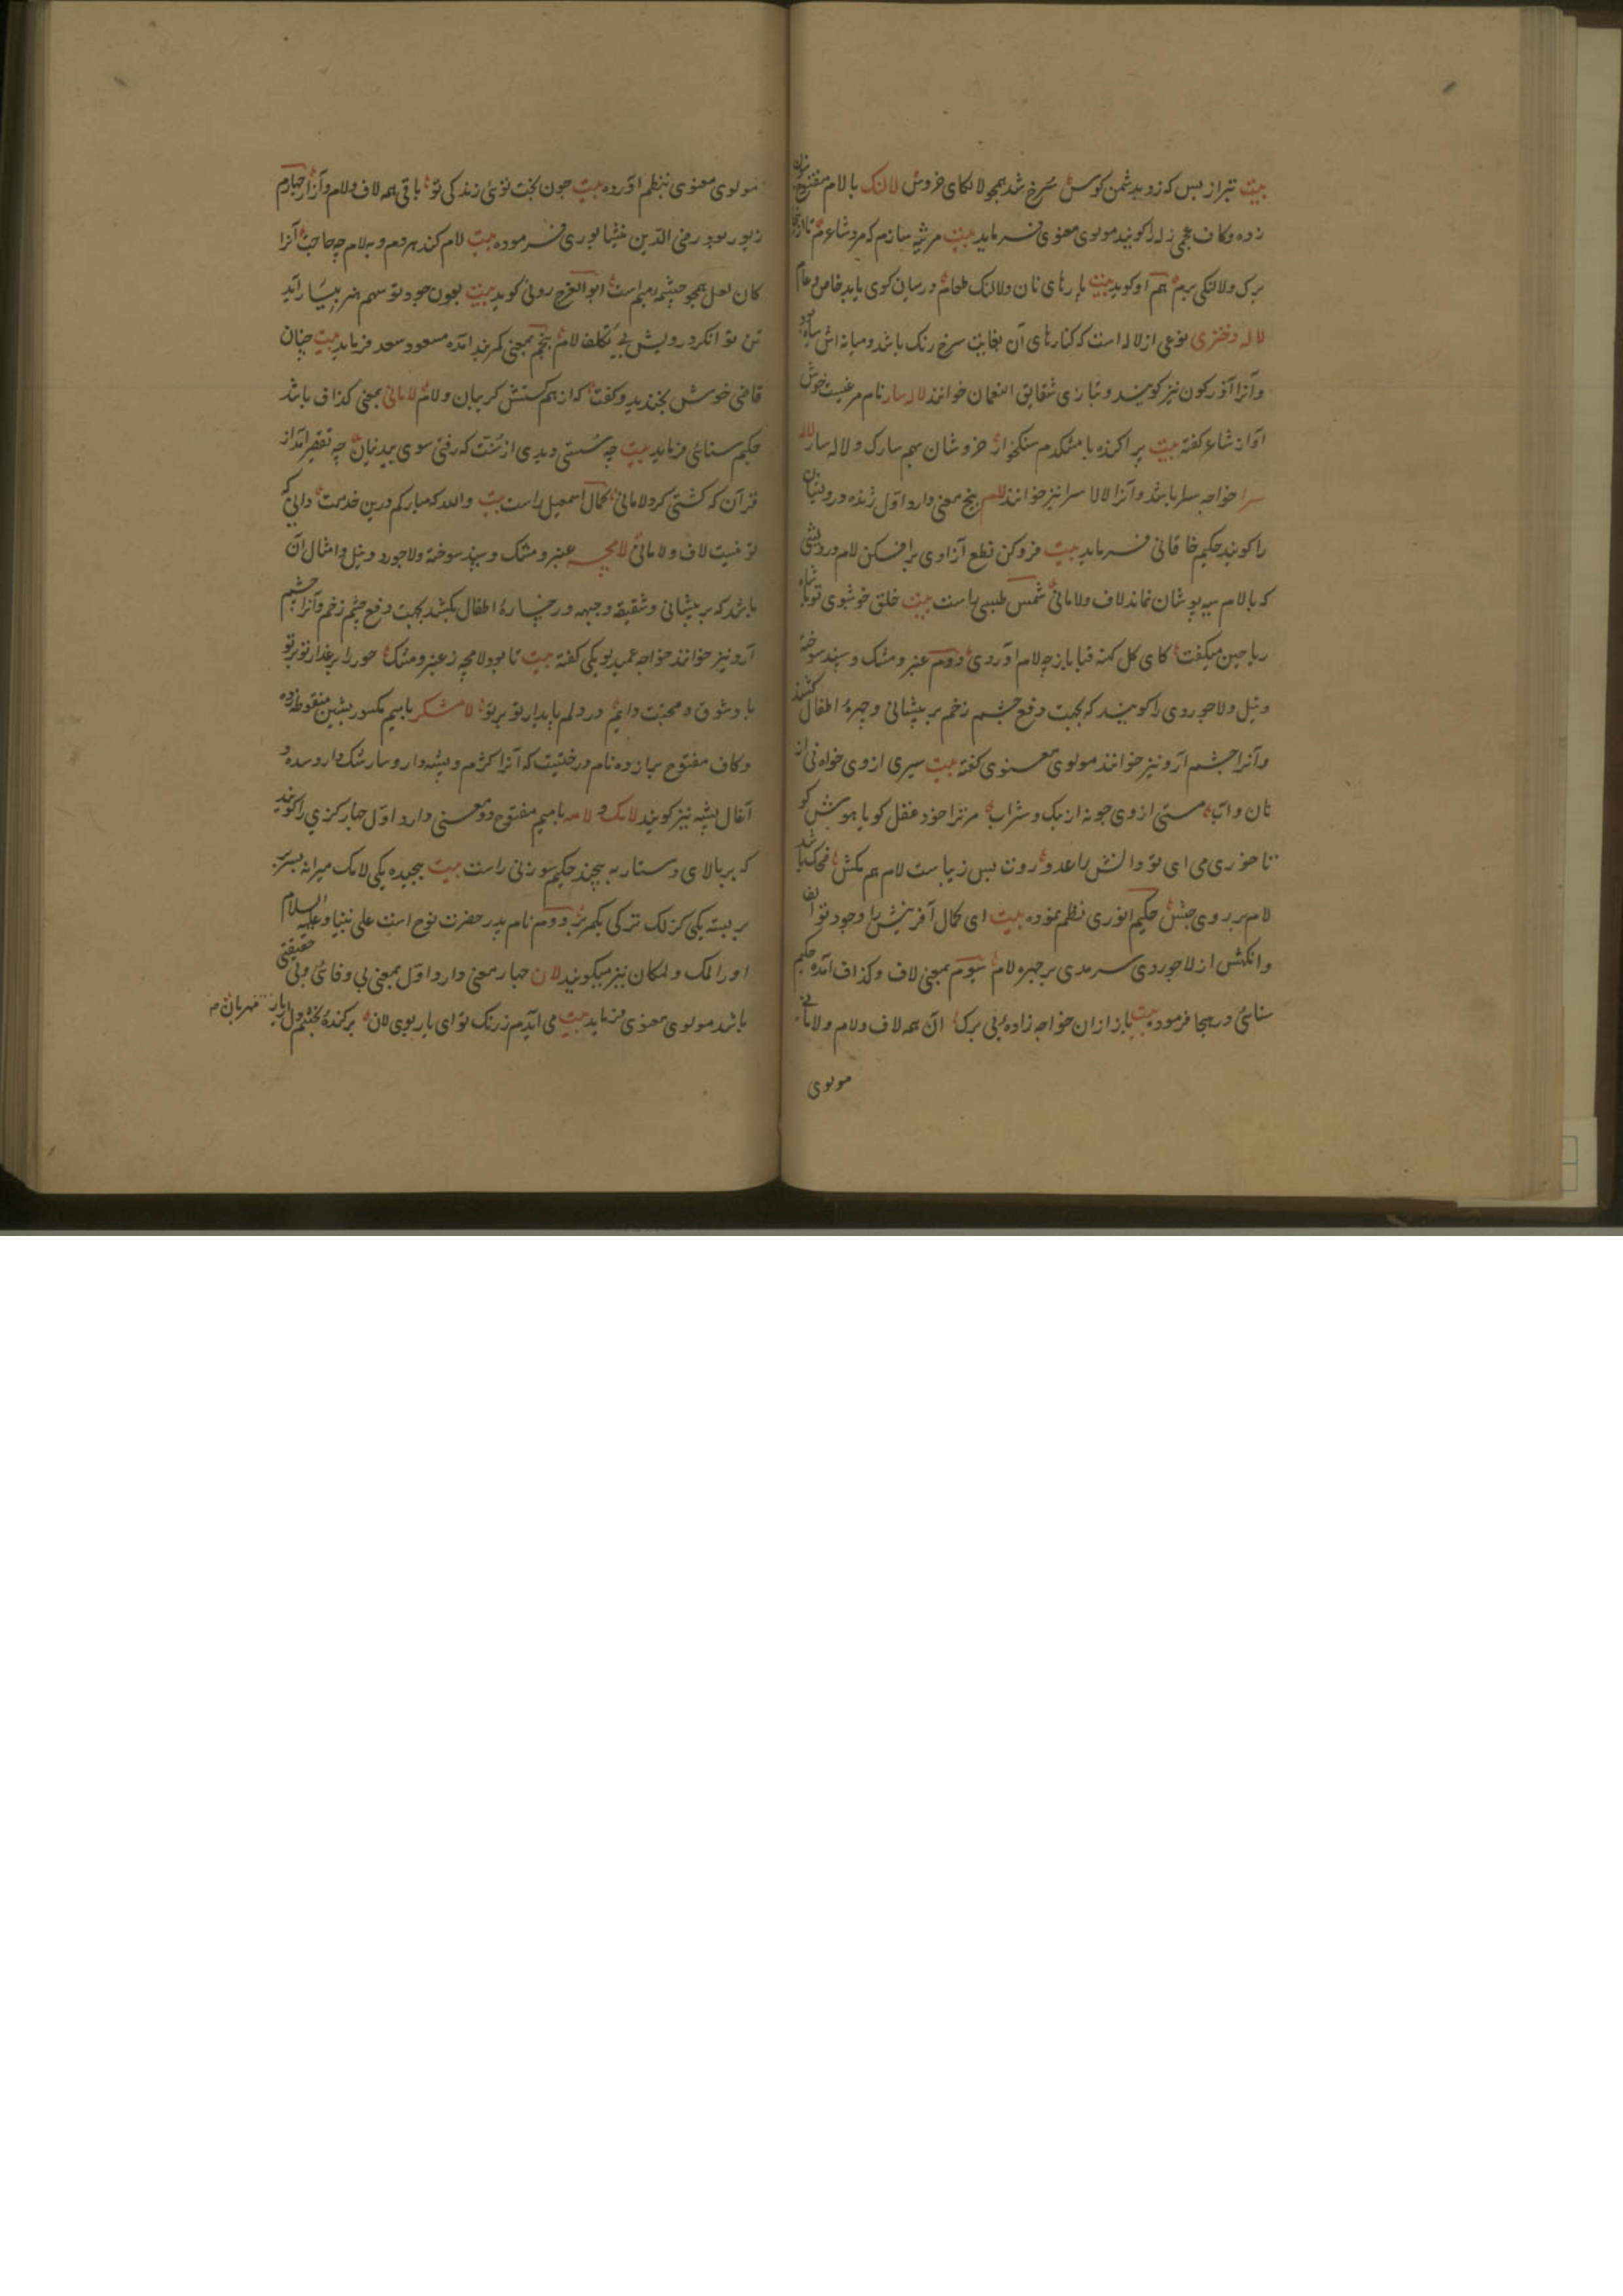 بیت تبر از بس که زد بدشمن کوس سرخ شد همچو لالکای خروس لالنک با لام مفتوح بنون
زده وکاف عجمی زله را کویند مولوی معنوی فرماید بیت مرثیه سازم که مرد شاعرم تا ازینجا
برک ولالنکی برم هم او کوید بیت پارهای نان ولالنک طعام در میان کوی یابد خاص و عام
لاله دختری نوعی از لاله است که کنارهای آن بغایت سرخ رنک باشد ومیانه اش سیاه بود
وآنرا آذرکون نیز کویند وبتازی شقایق النعمان خوانند لاله سار نام مرغیست خوش
آواز شاعر کفته بیت پراکنده با مشکدم سنکخوار خروشان بهم سارک و لاله سار لالا
سرا خواجه سرا باشد وآنرا لالا سرا نیز خوانند لام پنج معنی دارد اول ژنده درویشان
را کویند حکیم خاقانی فرماید بیت فروکن نطع آزادی برافکن لام درویشی
که با لام سیه پوشان نماند لاف ولامانی شمس طبسی راست بیت خلق خوشبوی تو با شاه
ریاحین میکفت کای کل کهنه قبا باز چه لام آوردی دوم عنبر ومشک وسپند سوخته
ونیل ولاجوردی را کویند که بجهت دفع چشم زخم بر پیشانی وچهرۀ اطفال کشند
وآنرا چشم آرو نیز خوانند مولوی معنوی کفته بیت سیری از وی خواه نی از
نان وآب مستی از وی جو نه از بنک وشراب مر ترا خود عقل کو یا هوش کو
تا خوری می ای تو دانش را عدو روت بس زیباست لام هم مکش ضحکه باشد
لام بر روی حبش حکیم انوری نظم نموده بیت ای کمال آفرینش را وجود تو الف
وانکهش از لاجوردی سرمدی بر چهره لام سوم بمعنی لاف وکذاف آمده حکیم
سنائی در هجا فرموده بیت باز از ان خواجه زادۀ بی برک آن همه لاف ولام ولامانی
مولوی
مولوی معنوی بنظم آورده بیت چون بخت توئی زندکی تو باقی همه لاف ولام وآزار چهارم
زیور بود رضی الدین نیشابوری فرموده بیت لام کند هر دم وبه لام چه حاجت آنرا
کان لعل همچو چشمه میم است ابوالفرج رونی کوید بیت بعون جود تو سهم هنر بیسار آید
تن توانکر درویش بی تکلف لام پنجم بمعنی کمربند آمده مسعود سعد فرماید بیت چنان
قاضی خوش بخندید وکفت که از هم کستش کریبان ولام لامانی بمعنی کذاف باشد
حکیم سنائی فرماید بیت چه سستی دیدی از سنت که رفتی سوی بیدینان چه تقصیر آمد از
قرآن که کشتی کرد لامانی کمال اسمعیل راست بیت والله که مبارکم درین خدمت دانی که
نیست لاف ولامانی لامچه عنبر ومشک وسپند سوخته ولاجورد ونیل وامثال آن
باشد که بر پیشانی وشقیقه وجبهه ورخسارۀ اطفال بکشند بجهت دفع چشم زخم وآنرا چشم
آرو نیز خوانند خواجه عمید لوبکی کفته بیت تا بود لامچه ز عنبر ومشک حور را بر عذار نو بر تو
باد شوق ومحبت دایم در دلم پایدار تو بر تو لامشکر بامیم مکسور بشین منقوطه زده
وکاف مفتوح برا زده نام درختیست که آنرا کژم وپشه دار وسارشک دار وسده و
آغال پشه نیز کویند لامک و لامه بامیم مفتوح دو معنی دارد اول چهار کزی را کویند
که بر بالای دستار به پیچند حکیم سوزنی راست بیت پیچیده یکی لامک میرانه بسر بر
بر بسته یکی کزلک ترکی بکمر بر دوم نام پدر حضرت نوح است علی نبینا وعلیه السلام
او را لمک ولمکان نیز میکویند لان چهار معنی دارد اول بمعنی بی وفائی وبی حقیقتی
باشد مولوی معنوی فرماید بیت می آیدم ز رنک تو ای یار بوی لان برکندۀ بخشم دل از یار مهربان